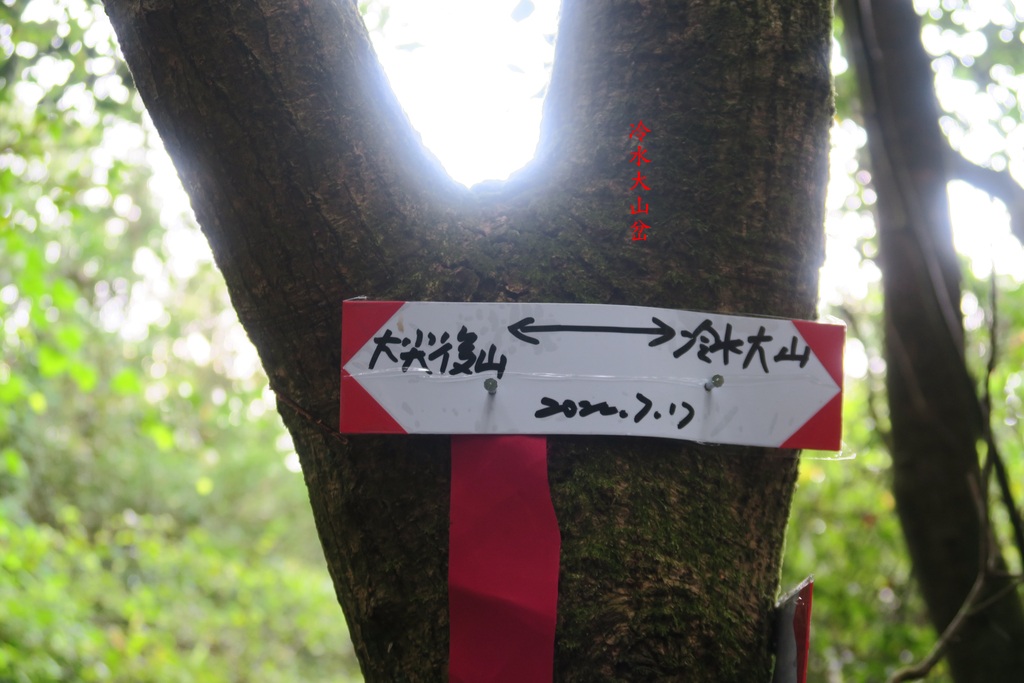 冷水大山岔
犬尖後山 ←→ 冷水大山
2022.7.17